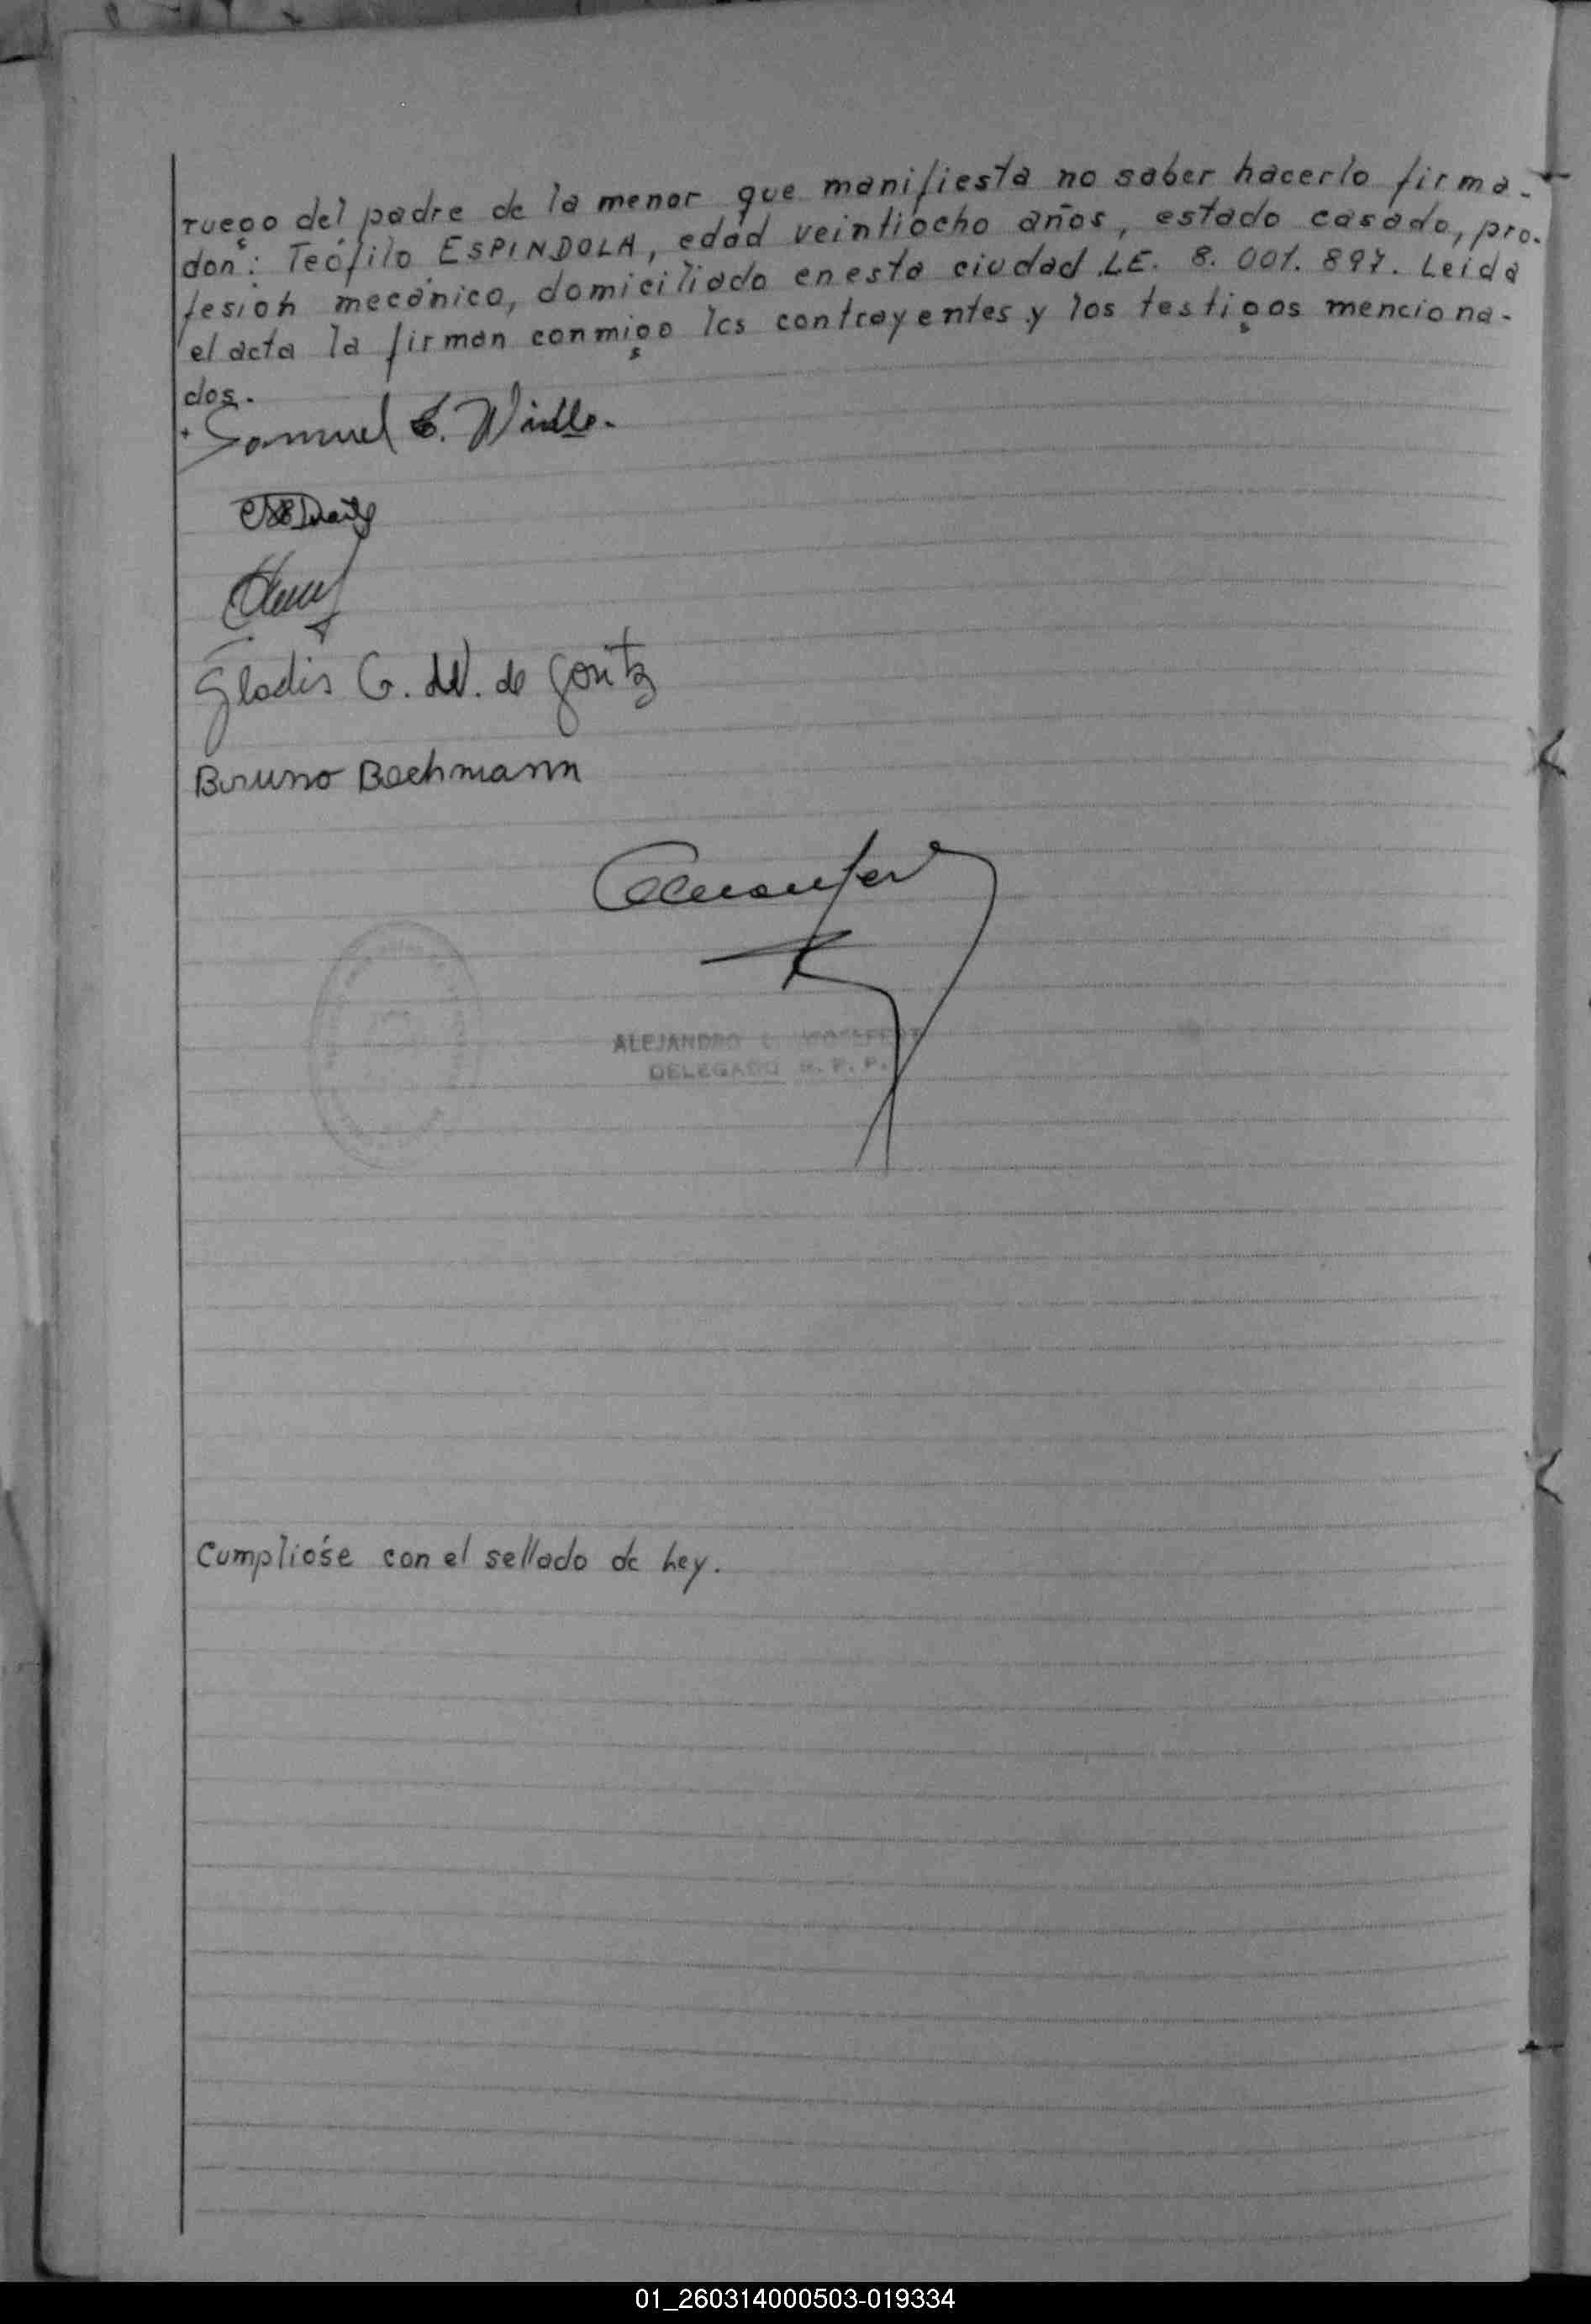 ruego del padre de la menor que manifiesta no saber hacerlo firma-
don: Teófilo ESPINDOLA, edad veintiocho años, estado casado, pro-
fesión mecánico, domiciliado en esta ciudad LE. 8.001.897. Leida
el acta la firman conmigo los contrayentes y los testigos menciona-
dos.
Samuel E.
Gladis G. W. de Goritz
Bruno Bachmann
ALEJANDRO
DELEGADO R. P. P.
Cumplióse con el sellado de Ley.
01_260314000503-019334